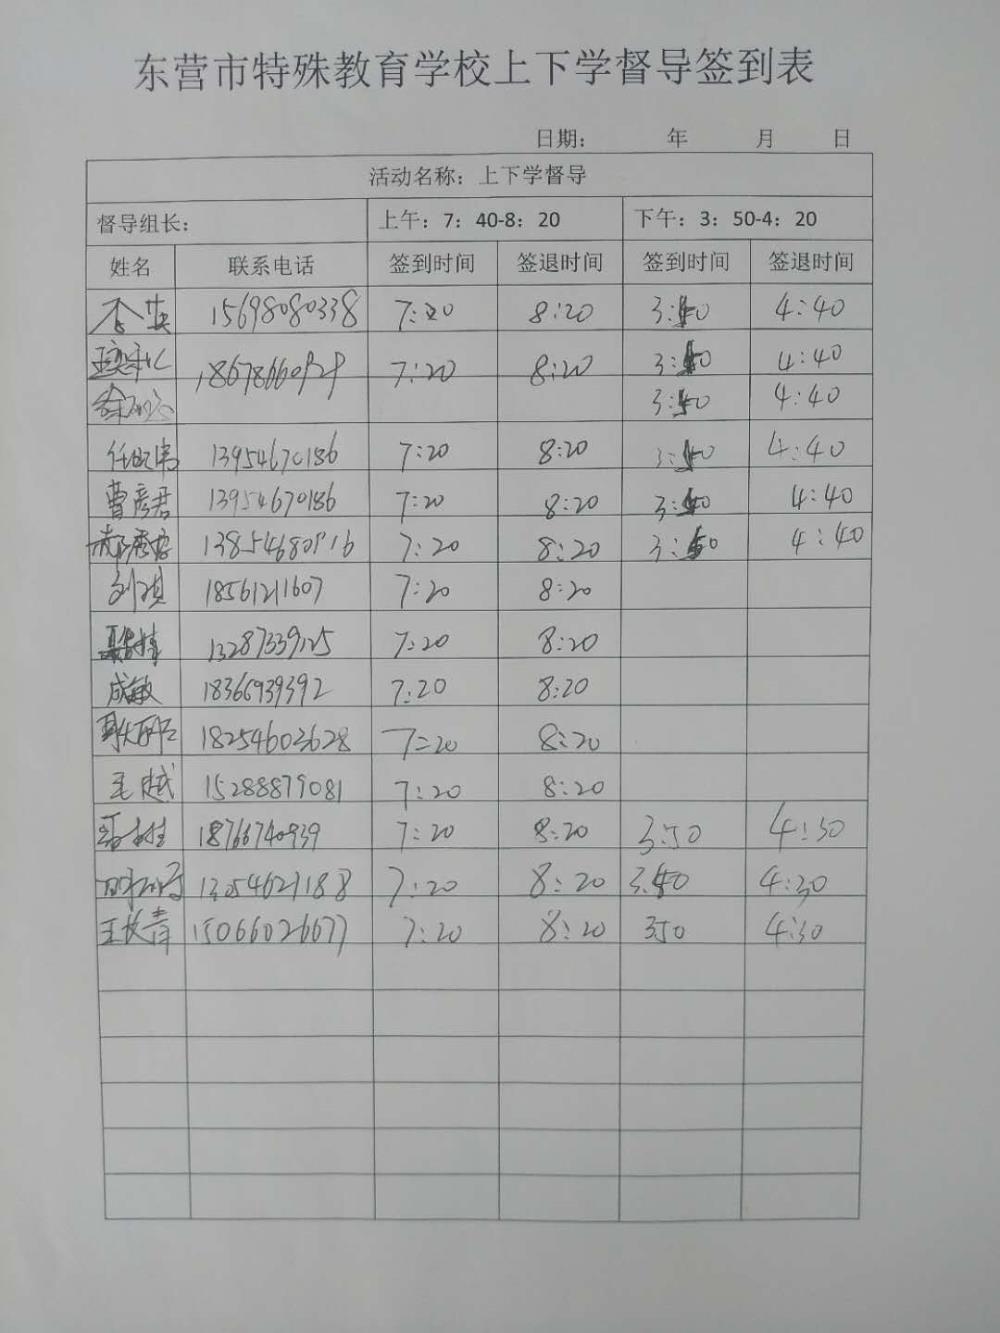 东营市特殊教育学校上下学督导签到表
日期： 年 月 日
活动名称：上下学督导
督导组长： 上午：7：40-8：20 下午：3：50-4：20
姓名 联系电话 签到时间 签退时间 签到时间 签退时间
15698080338 7:20 8:20 4:40
7:20 8:20 4:40
4:40
13954670186 7:20 8:20 4:40
曹彦君 13954670186 7:20 8:20 4:40
7:20 8:20 4:40
刘琪 18561211607 7:20 8:20
7:20 8:20
成敏 18366939392 7:20 8:20
18254603628 7:20 8:20
王越 15288879081 7:20 8:20
18766740939 7:20 8:20 3:50 4:30
7:20 8:20 4:30
王长青 15066026677 7:20 8:20 350 4:30